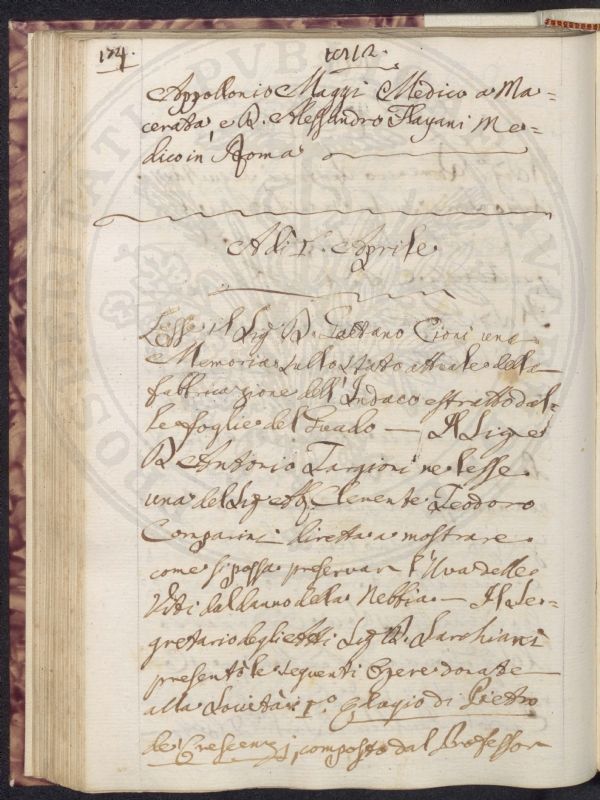 174.
1812.
Appollonio Maggi Medico a Ma=
cerata, e D. Alessandro Flajani Me=
dico in Roma
Adì 1.° Aprile
Lesse il Sig D. Gaetano Cioni una
Memoria sullo stato attuale della
fabbricazione dell'Indaco estratto dal=
le foglie del Guado — Il Sige
D Antonio Targioni ne lesse
una del Sig Clemente Teodoro
Comparini diretta a mostrare
come si possa preservar l'Uva delle
Viti dal danno della Nebbia — Il Se=
gretario degli Atti Sig D. Sarchiani
presentò le seguenti Opere donate
alla Società: 1.° Elogio di Pietro
de Crescenzj, composto dal Professor